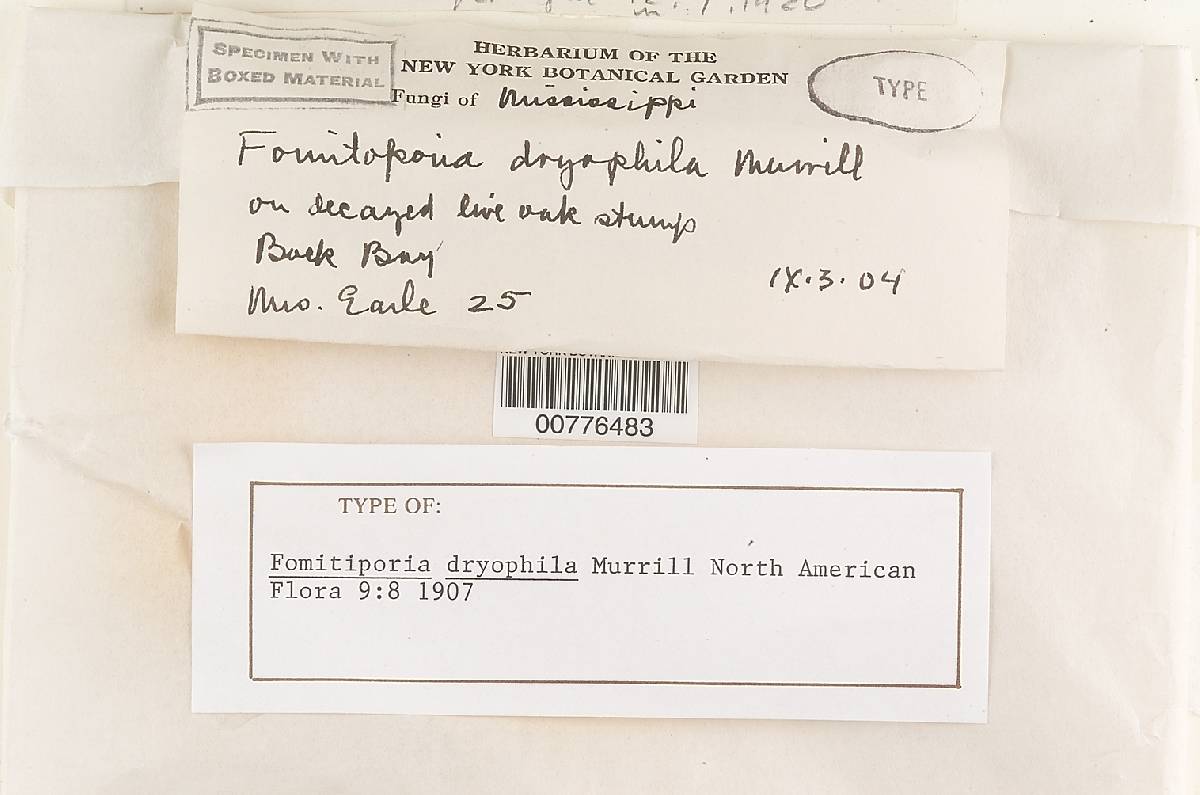 SPECIMEN WITH
BOXED MATERIAL
HERBARIUM OF THE
NEW YORK BOTANICAL GARDEN
Fungi of Mississippi
TYPE
Fomitoporia dryophila Murrill
on decayed live oak stump
Back Bay
IX.3.04
Mrs. Earle 25
00776483
TYPE OF:
Fomitiporia dryophila Murrill North American
Flora 9:8 1907